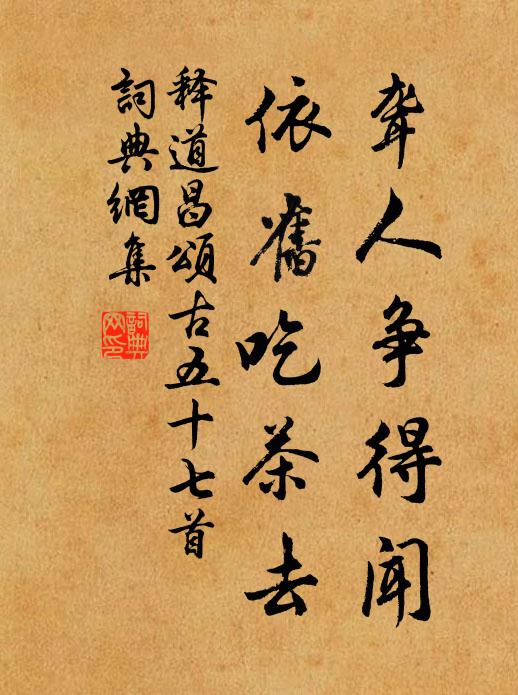 聋人争得闻
依舊吃茶去
释道昌頌古五十七首
詞典網集
詞典网印